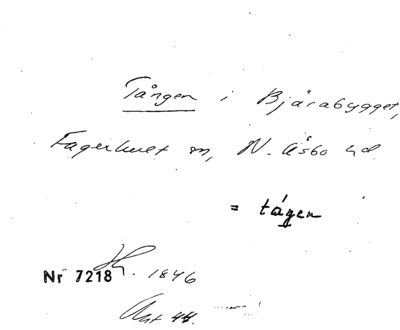 Tången i Bjärabygget,
Fagerhult sn, N. Åsbo hd
= tágen
Nr 7218 H. 1846